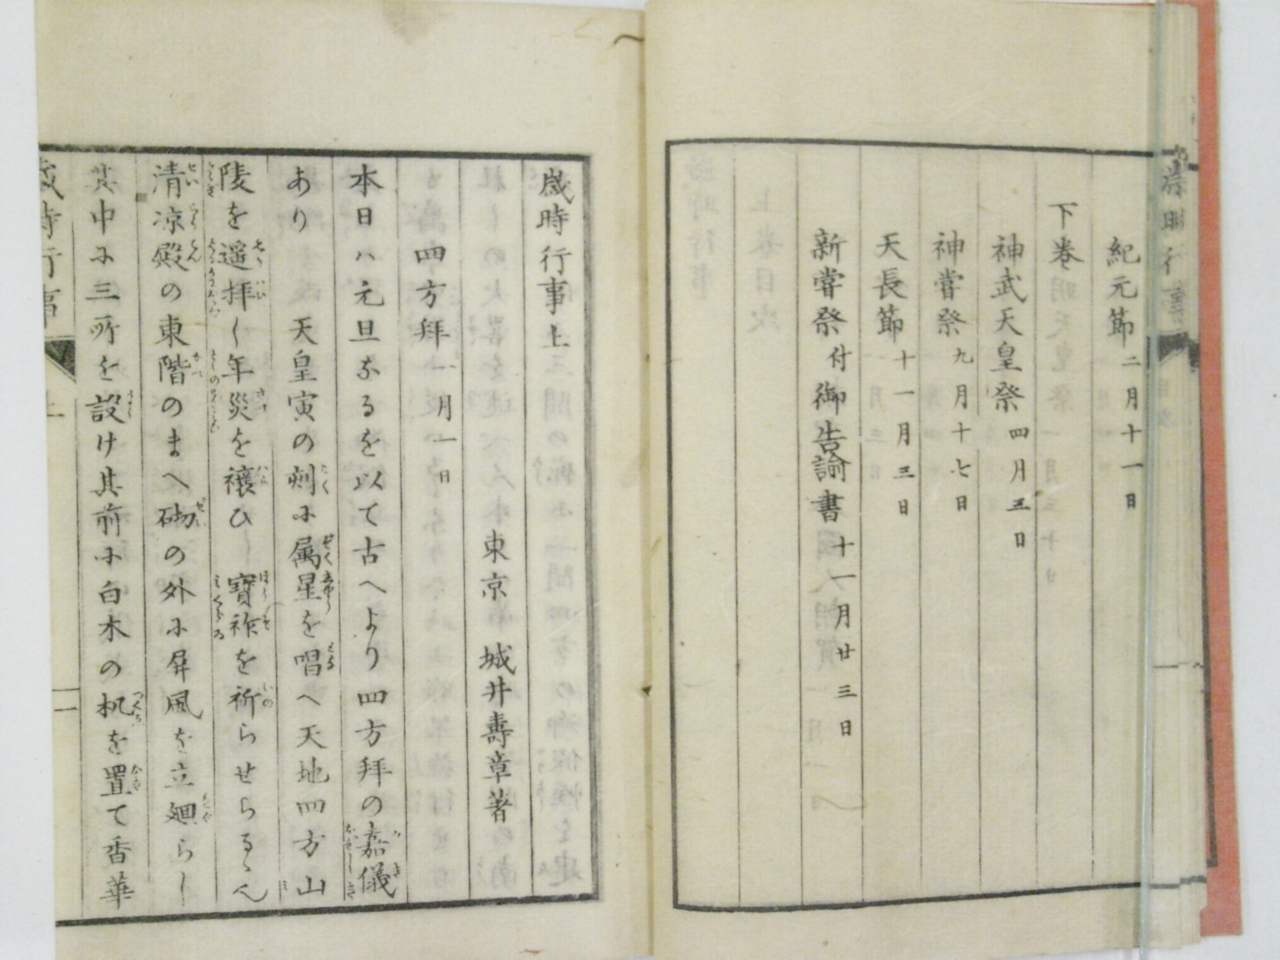 紀元節 二月十一日
下巻
神武天皇祭 四月三日
神嘗祭 九月十七日
天長節 十一月三日
新嘗祭 付御告諭書 十一月廿三日
歳時行事上
東京 城井壽章著
四方拝 一月一日
本日ハ元旦なるを以て古へより四方拝の嘉儀
あり 天皇寅の刻に属星を唱へ天地四方山
陵を遥拝し年災を禳ひ 寶祚を祈らせらるゝ
清凉殿の東階のまへ砌の外に屏風を立廻らし
其中に三所を設け其前に白木の机を置て香華
歳時行事 上